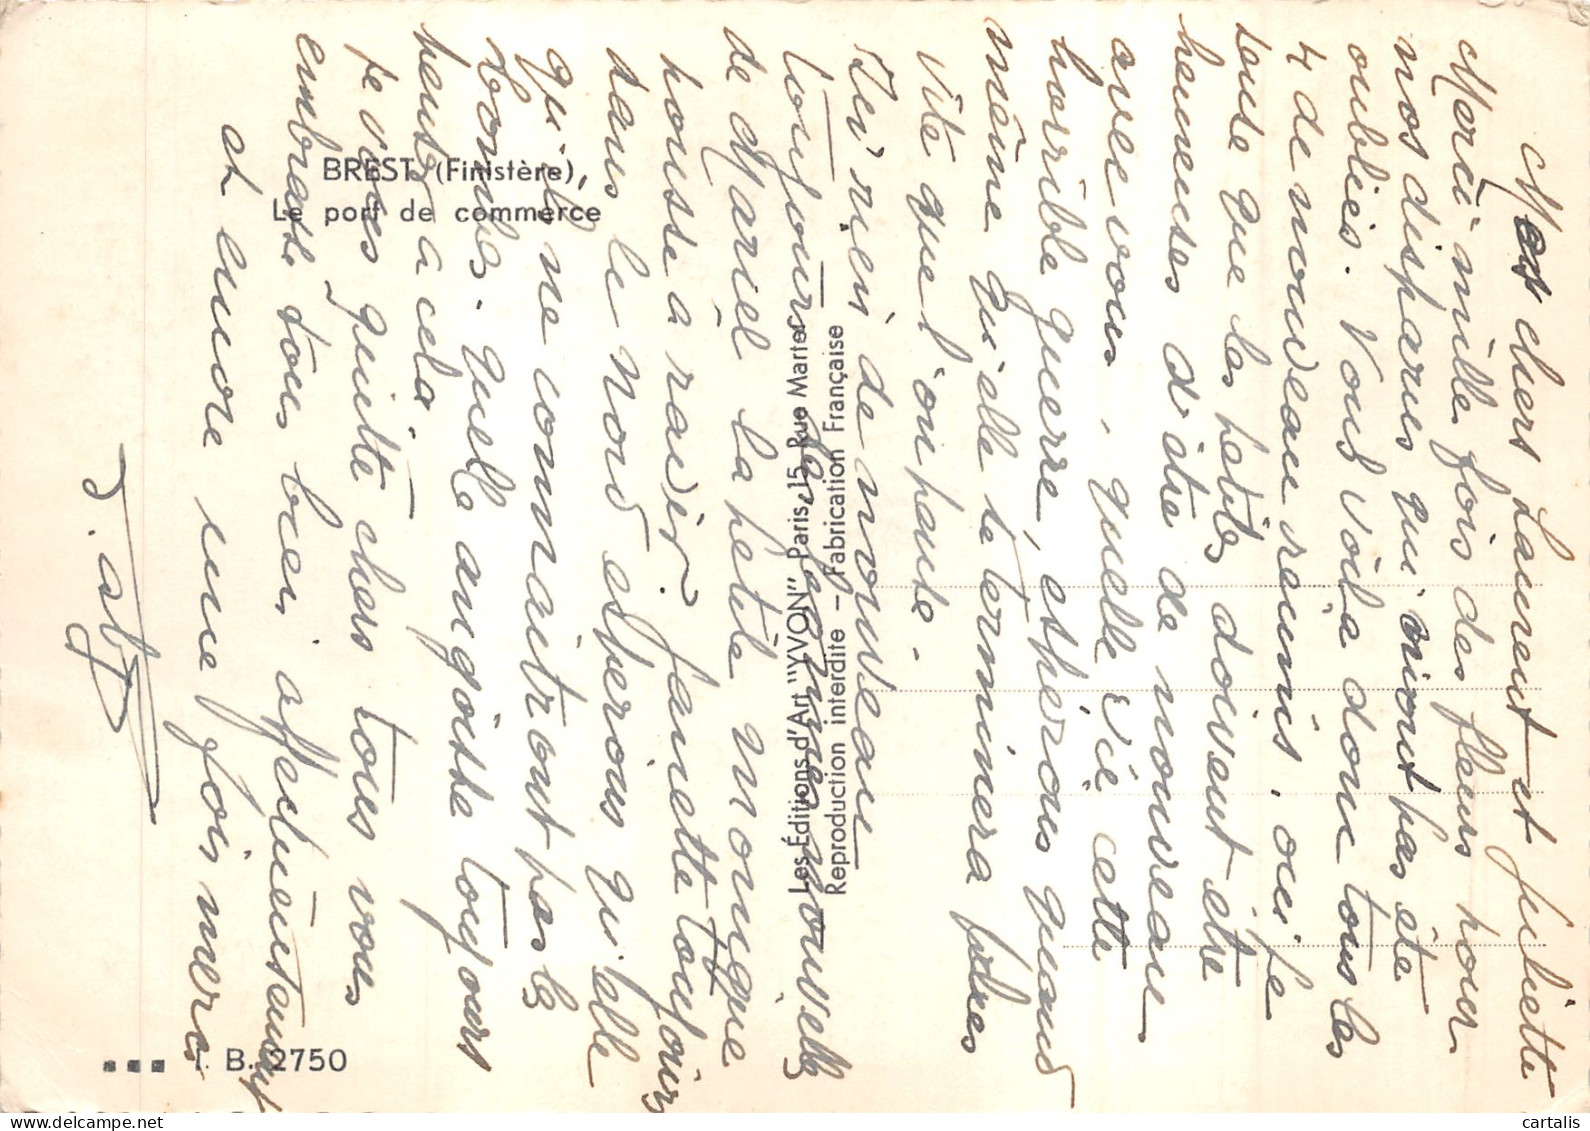 BREST (Finistère)
Le port de commerce
Mes chers Laurent et Juliette
Merci mille fois des fleurs pour
nos disparus qui n'ont pas été
oubliés. Vous voilà donc tous les
4 de nouveau réunis, oui je
doute que les petites doivent être
heureuses d'être de nouveau
avec vous, quelle vie cette
horrible guerre, espérons quand
même qu'elle se terminera plus
vite que l'on pense.
Ici rien de nouveau
toujours nouvelles
de Mariel la petite
pousse à ravir. Janette toujours
dans le nord espérons qu'elle
qu'ils ne connaîtront pas les
bombes. quelle angoisse toujours
penser à cela.
Je vous quitte chers tous vous
embrasse tous bien affectueusement
et encore une fois merci
Les Éditions d'Art "YVON" Paris, 15, Rue Martel
Reproduction interdite - Fabrication Française
I. B. 2750
cartalis